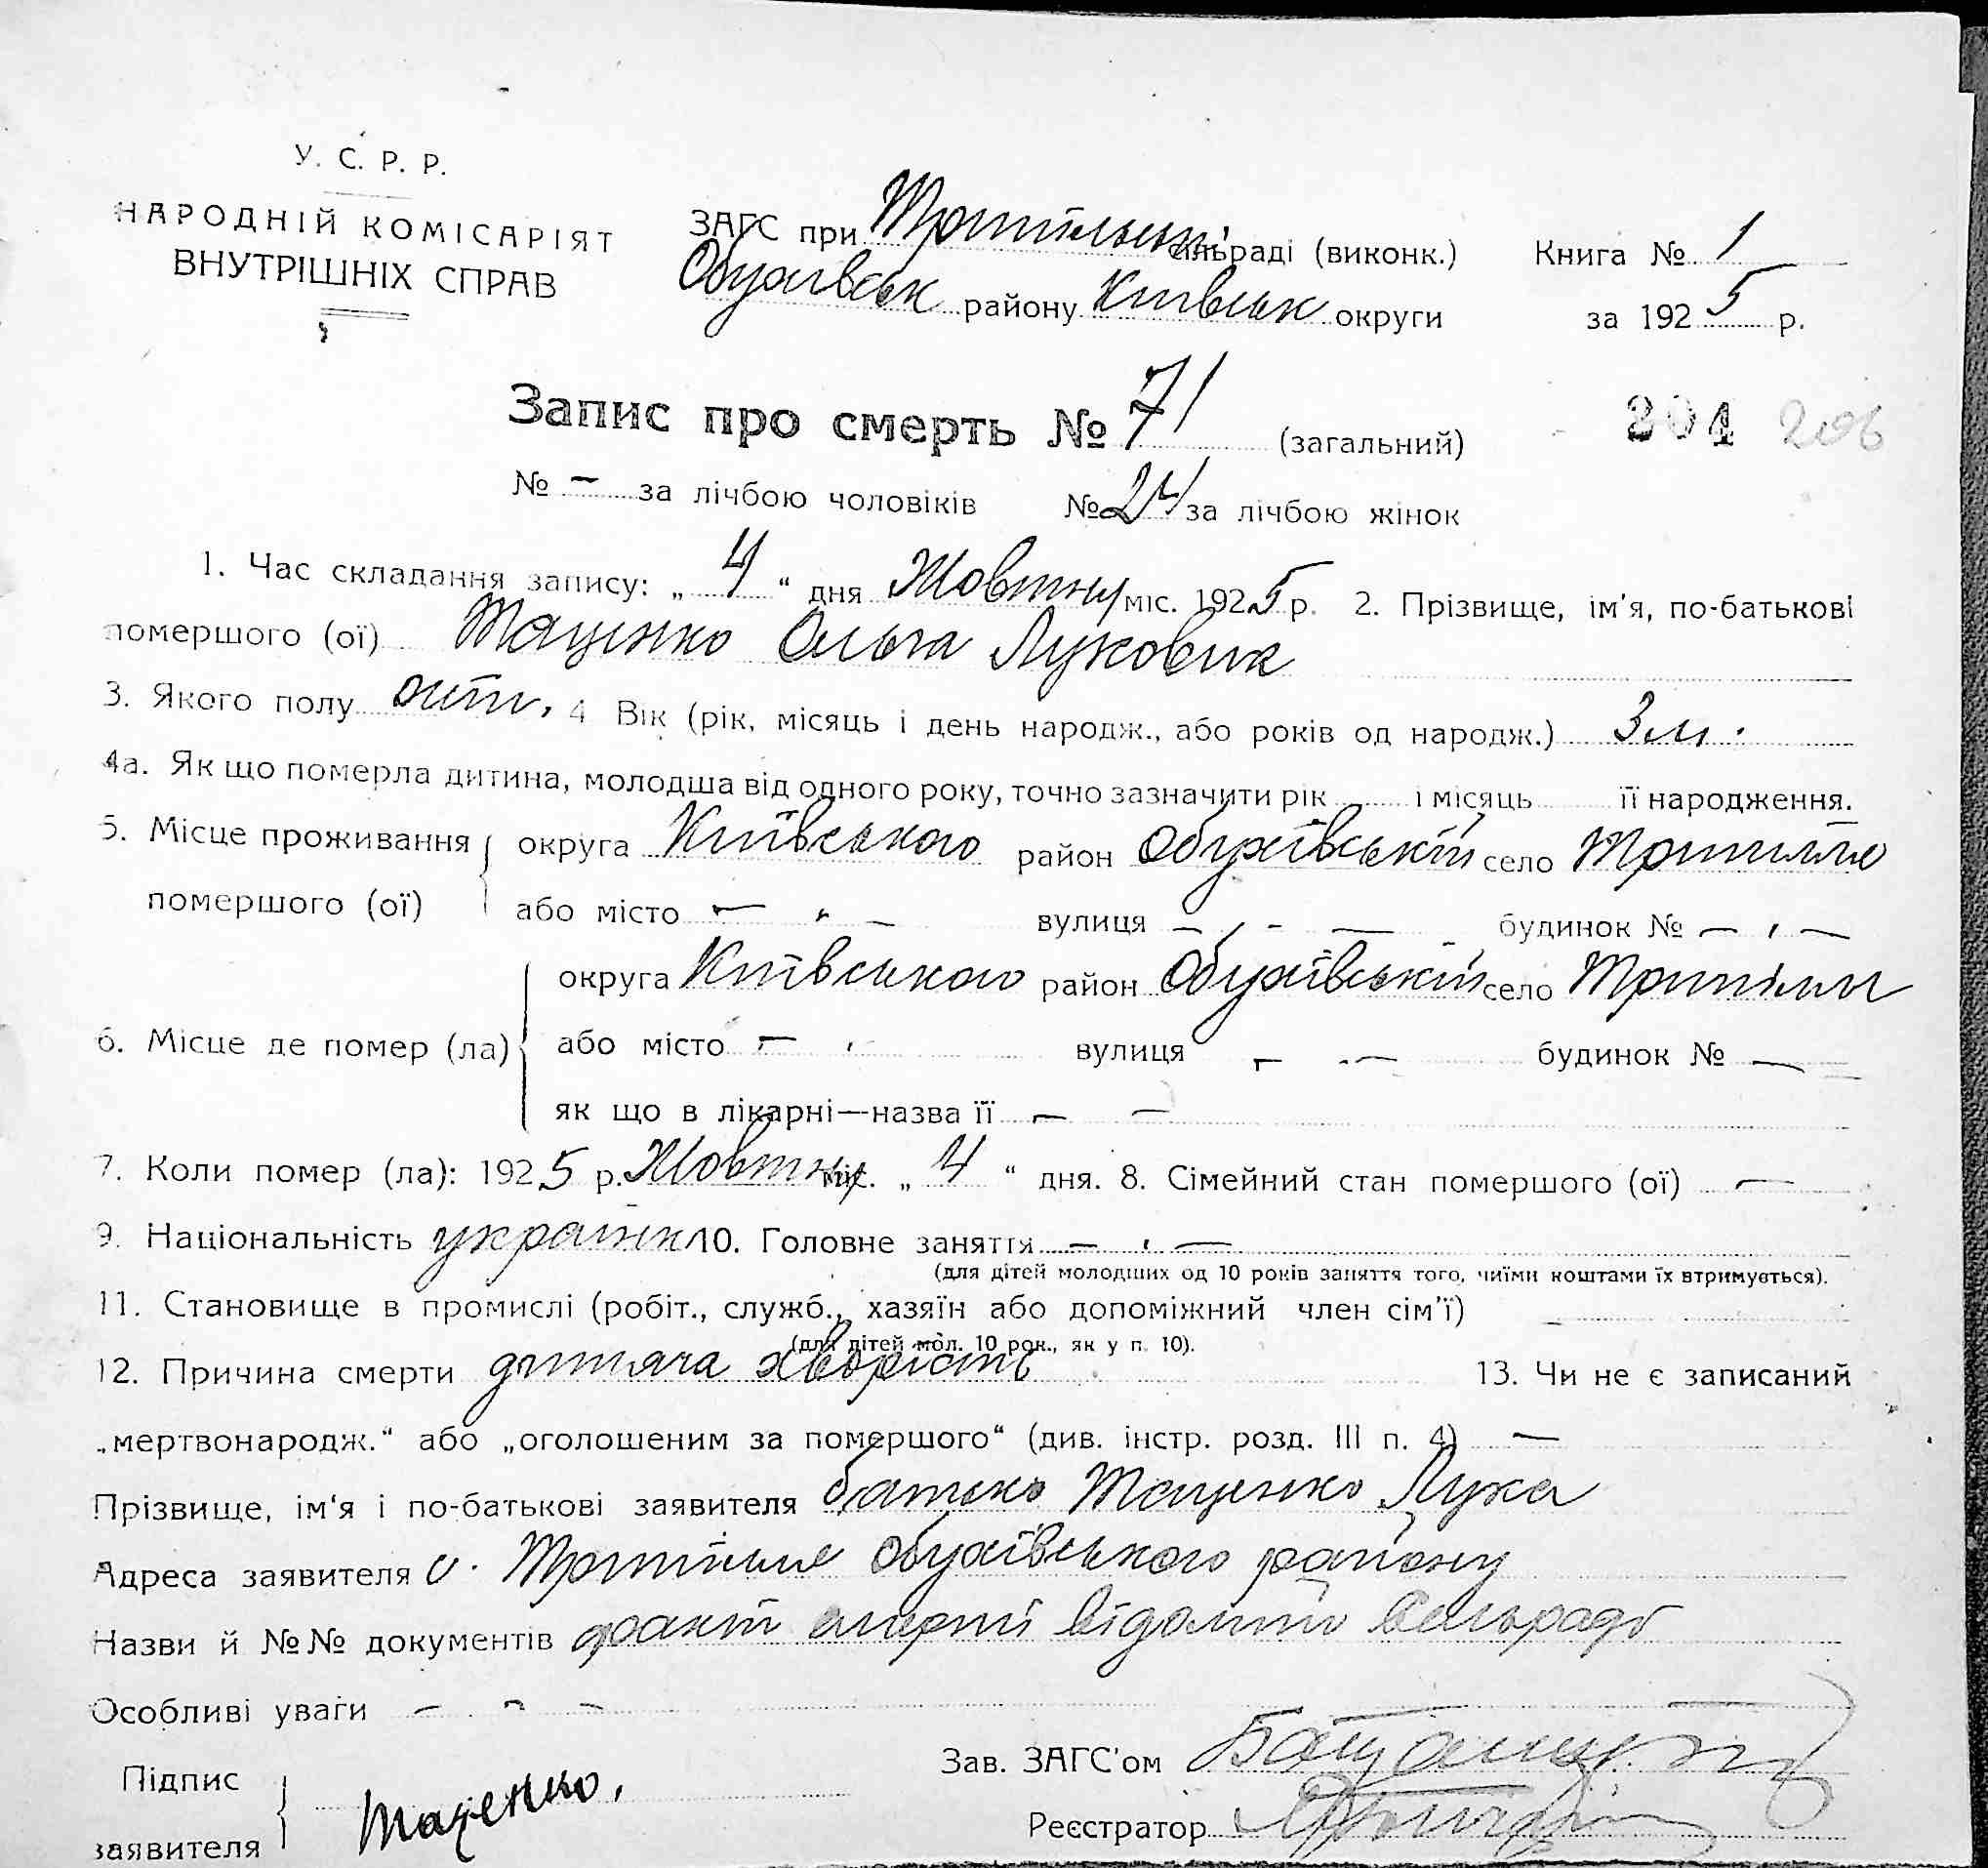 У. С. Р. Р.
НАРОДНІЙ КОМІСАРІЯТ
ВНУТРІШНІХ СПРАВ
ЗАГС при Трипільські сільраді (виконк.) Книга № 1
Обухівськ району Київськ округи за 1925 р.
Запис про смерть № 71 (загальний) 204 206
№ – за лічбою чоловіків № 24 за лічбою жінок
1. Час складання запису: „ 4 “ дня Жовтня міс. 1925 р. 2. Прізвище, ім'я, по-батькові
помершого (ої) Таценко Ольга Луковна
3. Якого полу 4 Вік (рік, місяць і день народж., або років од народж.) 3 м.
4а. Як що померла дитина, молодша від одного року, точно зазначити рік і місяць її народження.
5. Місце проживання округа Київського район Обухівський село Трипилля
помершого (ої) або місто – „ – вулиця – , - – будинок № – , –
округа Київського район Обухівський село Трипілля
6. Місце де помер (ла) або місто – , вулиця – - – будинок № –
як що в лікарні—назва її – –
7. Коли помер (ла): 1925 р. Жовтня міс. „ 4 “ дня. 8. Сімейний стан помершого (ої) –
9. Національність українк 10. Головне заняття – , –
(для дітей молодших од 10 років заняття того, чиїми коштами їх втримується).
11. Становище в промислі (робіт., служб., хазяїн або допоміжний член сім'ї) –
(для дітей мол. 10 рок., як у п. 10).
12. Причина смерти дитяча хворість 13. Чи не є записаний
„мертвонародж.“ або „оголошеним за помершого“ (див. інстр. розд. III п. 4) –
Прізвище, ім'я і по-батькові заявителя батько Таценко Лука
Адреса заявителя с. Трипілля Обухівського району
Назви й №№ документів факт смерті відомий сельраді
Особливі уваги – – –
Підпис Зав. ЗАГС'ом
заявителя Таценко. Реєстратор